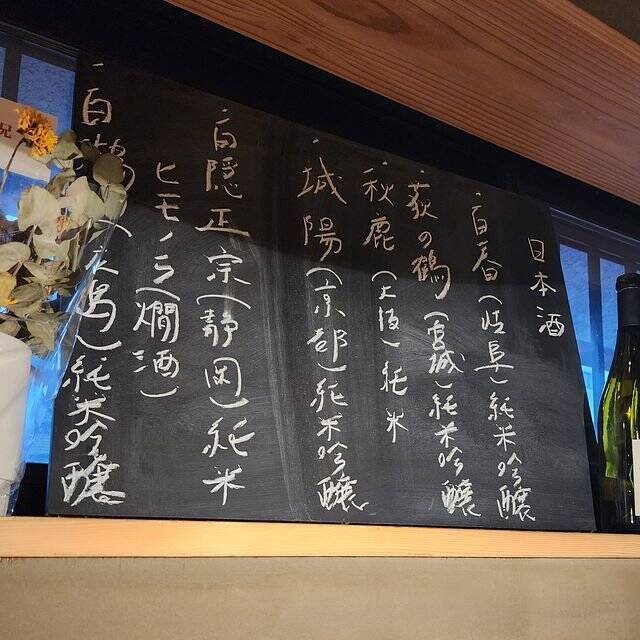 日本酒
・百春(岐阜)純米吟醸
・萩の鶴(宮城)純米吟醸
・秋鹿(大阪)純米
・城陽(京都)純米吟醸
・白隠正宗(静岡)純米
ヒモノラ(燗酒)
島)純米吟醸